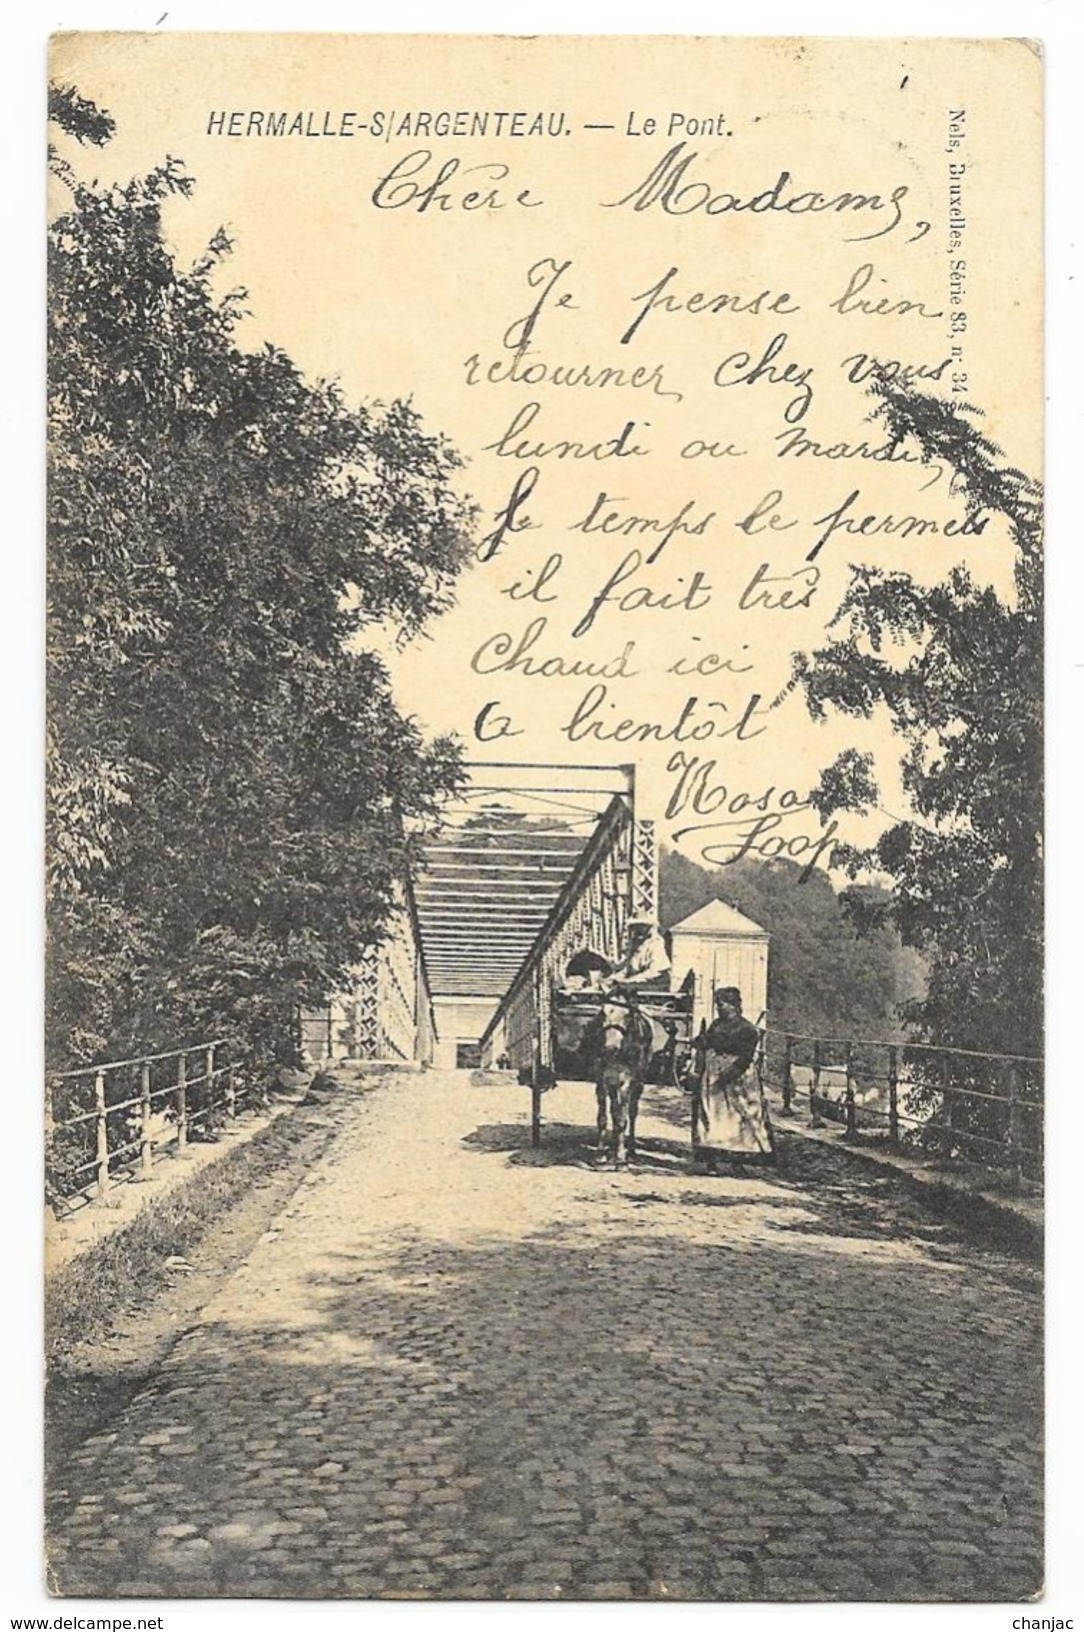 HERMALLE-S/ARGENTEAU. — Le Pont.
Nels, Bruxelles, Série 83, n° 34
Chère Madame,
Je pense bien
retourner chez vous
lundi ou mardi,
le temps le permet
il fait très
Chaud ici
a bientôt
Rosa
Loop
www.delcampe.net
chanjac